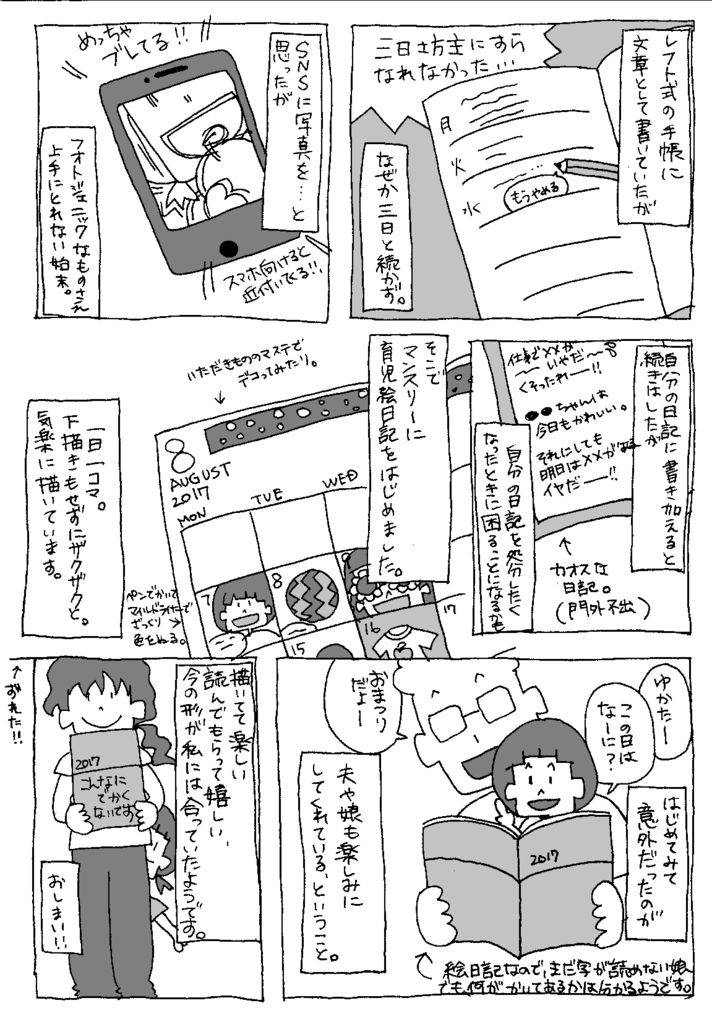 レフト式の手帳に
文章として書いていたが
三日坊主にすら
なれなかった…
月
火
水
もうやめる
なぜか三日と続かず。
SNSに写真を…と
思ったが
めっちゃ
ブレてる!!
スマホ向けると
近付いてくる!!
フォトジェニックなものさえ
上手にとれない始末。
自分の日記に書き加えると
続きはしたが
仕事で××が
いやだ〜〜
くそったれー!!
●●ちゃんは
今日もかわいい。
それにしても
明日は××がある
イヤだー!!
カオスな
日記。
(門外不出)
自分の日記を処分したく
なったときに困ることになるかも
そこで
マンスリーに
育児絵日記をはじめました。
いただきもののマステで
デコってみたり。
8
AUGUST
2017
MON
TUE
WED
7
8
15
16
17
ペンでかいて
マイルドライナーで
ざっくり
色をぬる。
一日一コマ。
下描きもせずにザクザクと。
気楽に描いています。
ゆかたー
この日は
なーに?
おまつり
だよー
はじめてみて
意外だったのが
2017
夫や娘も楽しみに
してくれている、ということ。
絵日記なので、まだ字が読めない娘
でも、何がかいてあるかは分かるようです。
描いてて楽しい
読んでもらって嬉しい、
今の形が私には合っていたようです。
2017
こんなに
でかく
ないです
おしまい!!
→ずれた!!